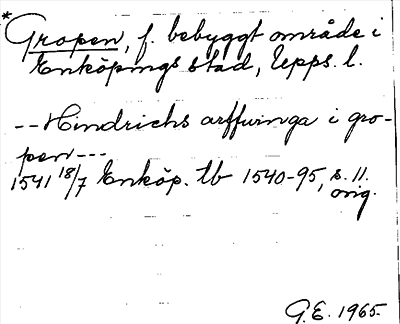 *Gropen, f. bebyggt område i
Enköpings stad, Upps. l.
--Hindrichs arffwinga i gro-
pen---
1541 18/7 Enköp. tb 1540-95, s. 11.
orig.
G.E. 1965.